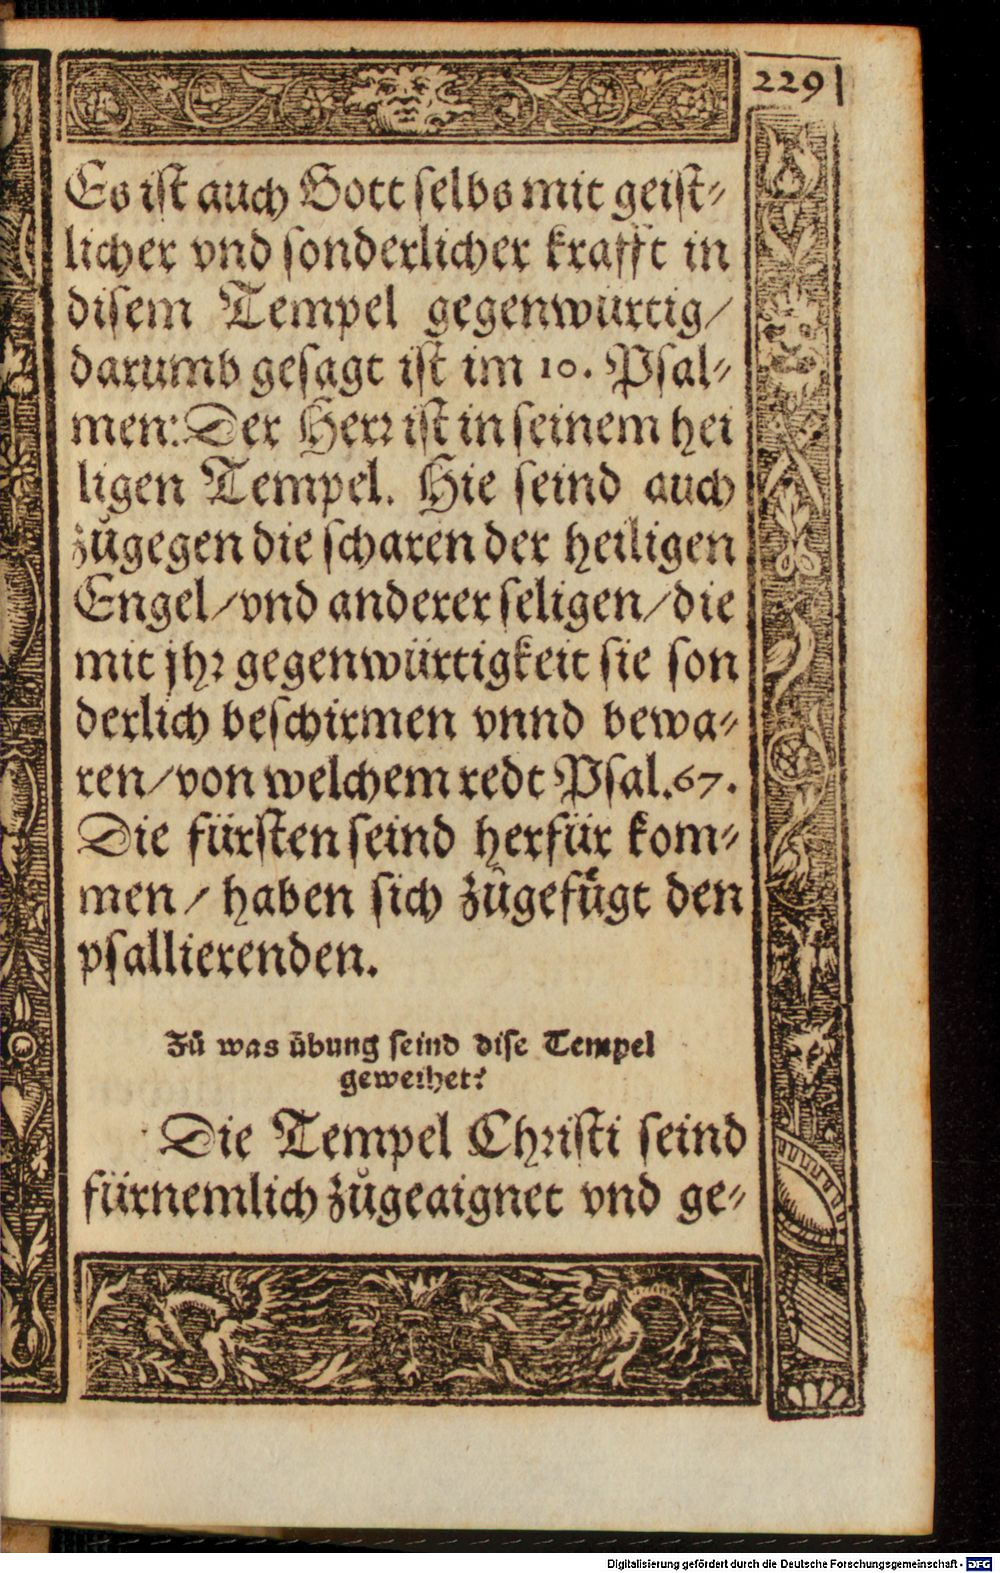 229
Es ist auch Gott selbs mit geist⸗
licher vnd sonderlicher krafft in
disem Tempel gegenwürtig/
darumb gesagt ist im 10. Psal⸗
men: Der Herr ist in seinem hei
ligen Tempel. Hie seind auch
zůgegen die scharen der heiligen
Engel/vnd anderer seligen/die
mit jhr gegenwürtigkeit sie son
derlich beschirmen vnnd bewa⸗
ren/von welchem redt Psal.67.
Die fürsten seind herfür kom⸗
men/ haben sich zůgefügt den
psallierenden.
Zů was übung seind dise Tempel
geweihet?
Die Tempel Christi seind
fürnemlich zůgeaignet vnd ge⸗
Digitalisierung gefördert durch die Deutsche Forschungsgemeinschaft - DFG